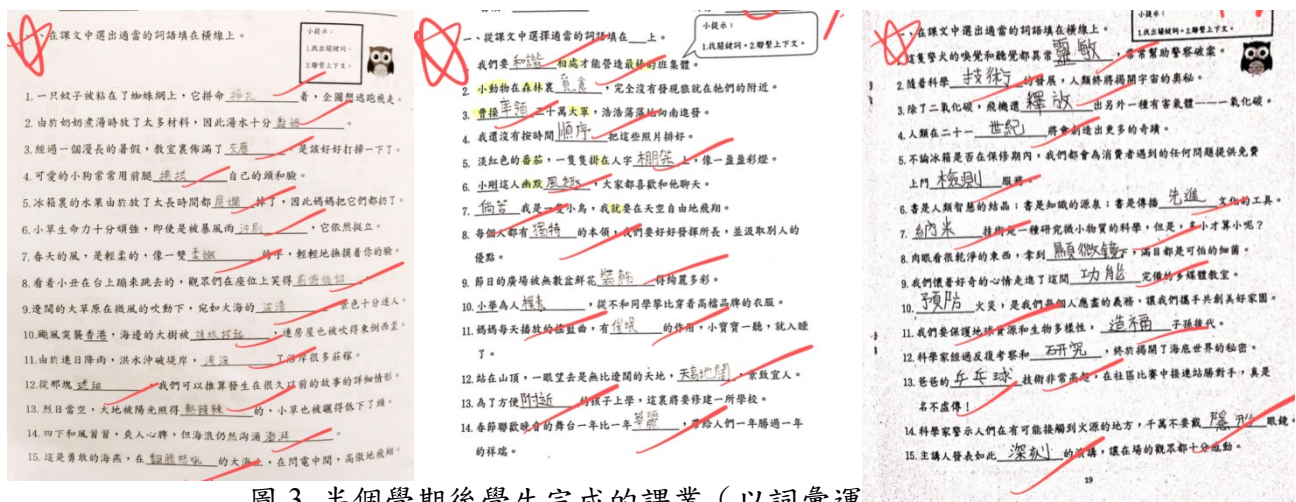 、在課文中選出適當的詞語填在橫線上。
小提示：
1.找出關鍵詞。
2.聯繫上下文。
1. 一只蚊子被粘在了蜘蛛網上，它拼命 掙扎 着，企圖想逃跑飛走。
2. 由於奶奶煮湯時放了太多材料，因此湯水十分 。
3. 經過一個漫長的暑假，教室裏佈滿了 灰塵 ，是該好好打掃一下了。
4. 可愛的小狗常常用前腿 自己的頭和臉。
5. 冰箱裏的水果由於放了太長時間都 腐爛 掉了，因此媽媽把它們都扔了。
6. 小草生命力十分頑強，即使是被暴風雨 沖刷 ，它依然挺立。
7. 春天的風，是輕柔的，像一雙 柔嫩 的手，輕輕地撫摸着你的臉。
8. 看着小丑在台上蹦來跳去的，觀眾們在座位上笑得 。
9. 遼闊的大草原在微風的吹動下，宛如大海的 波濤 ，景色十分迷人。
10. 颱風突襲香港，海邊的大樹被 ，連房屋也被吹得東倒西歪。
11. 由於連日降雨，洪水沖破堤岸， 淹沒 了沿岸很多莊稼。
12. 從那塊 琥珀 ，我們可以推算發生在很久以前的故事的詳細情形。
13. 烈日當空，大地被陽光照得 熱辣辣 的，小草也被曬得低下了頭。
14. 四下和風習習，爽人心脾，但海浪仍然洶涌 澎湃 。
15. 這是勇敢的海燕，在 翻騰怒吼 的大海上，在閃電中間，高傲地飛翔。
一、從課文中選擇適當的詞語填在___上。
小提示：
1.找關鍵詞。2.聯繫上下文。
我們要 和諧 相處才能營造最終的班集體。
2. 小動物在森林裏 覓食 ，完全沒有發現狼就在牠們的附近。
3. 曹操 率領 三十萬大軍，浩浩蕩蕩地向南進發。
4. 我還沒有按時間 順序 把這些照片排好。
5. 淡紅色的番茄，一隻隻掛在人字 棚架 上，像一盞盞彩燈。
6. 小剛這人幽默 風趣 ，大家都喜歡和他聊天。
7. 倘若 我是一隻小鳥，我就要在天空自由地飛翔。
8. 每個人都有 獨特 的本領，我們要好好發揮所長，並汲取別人的
優點。
9. 節日的廣場被無數盆鮮花 裝飾 得絢麗多彩。
10. 小華為人 樸素 ，從不和同學攀比穿着高檔品牌的衣服。
11. 媽媽每天播放的搖籃曲，有 催眠 的作用，小寶寶一聽，就入睡
了。
12. 站在山頂，一眼望去是無比遼闊的天地， 天高地闊 ，景致宜人。
13. 為了方便 附近 的孩子上學，這裏將要修建一所學校。
14. 春節聯歡晚會的舞台一年比一年 華麗 ，帶給人們一年勝過一年
的祥瑞。
小提示：
1.找出關鍵詞。2.聯繫上下文。
一、在課文中選出適當的詞語填在橫線上。
這隻警犬的嗅覺和聽覺都異常 靈敏 ，常常幫助警察破案。
2. 隨着科學 技術 的發展，人類終將揭開宇宙的奧秘。
3. 除了二氧化碳，飛機還 釋放 出另外一種有害氣體——一氧化碳。
4. 人類在二十一 世紀 將會創造出更多的奇蹟。
5. 不論冰箱是否在保修期內，我們都會為消費者遇到的任何問題提供免費
上門 檢測 服務。
6. 書是人類智慧的結晶；書是知識的源泉；書是傳播 先進 文化的工具。
7. 納米 技術是一種研究微小物質的科學，但是，多小才算小呢？
8. 肉眼看很乾淨的東西，拿到 顯微鏡 下，滿目都是可怕的細菌。
9. 我們懷着好奇的心情走進了這間 功能 完備的多媒體教室。
10. 預防 火災，是我們每個人應盡的義務，讓我們攜手共創美好家園。
11. 我們要保護地球資源和生物多樣性， 造福 子孫後代。
12. 科學家經過反復考察和 研究 ，終於揭開了海底世界的秘密。
13. 爸爸的 乒乓球 技術非常高超，在社區比賽中接連站勝對手，真是
名不虛傳！
14. 科學家警示人們在有可能接觸到火源的地方，千萬不要戴 隱形 眼鏡。
15. 主講人發表如此 深刻 的演講，讓在場的觀眾都十分感動。
19
圖 3 半個學期後學生完成的課業（以詞彙運